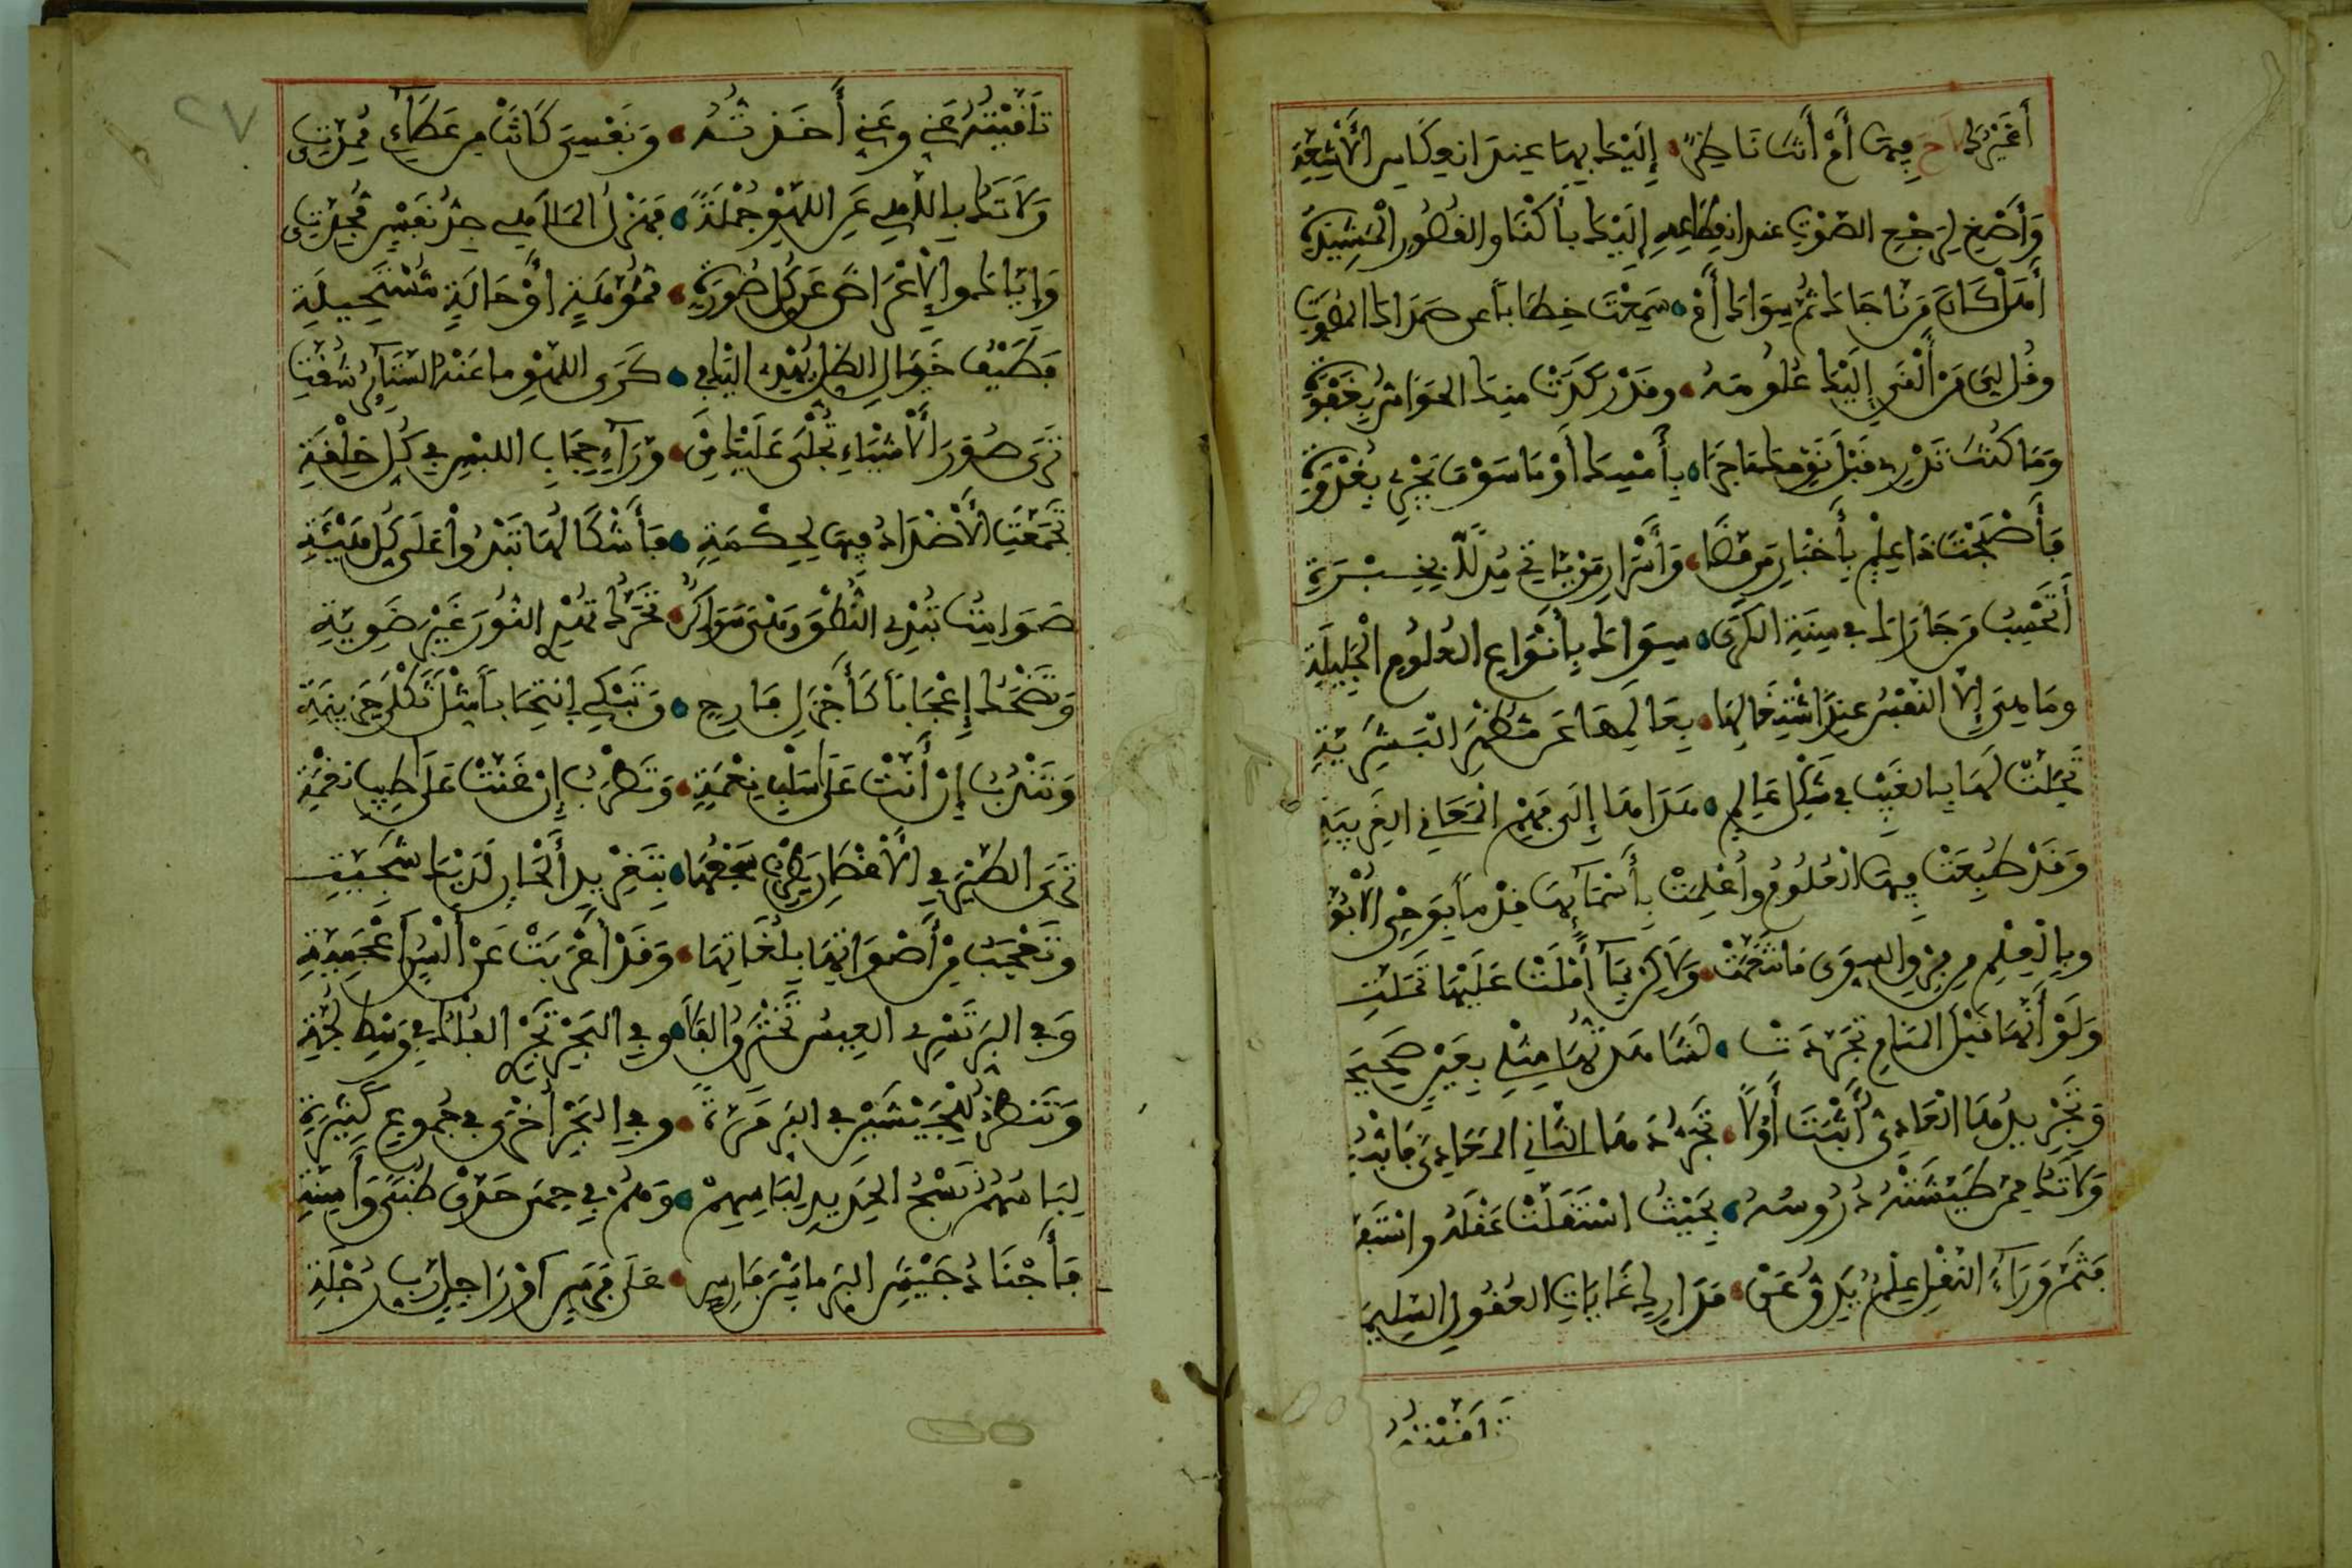 أَغَيْرُكَ لَاحَ فِيهَا أَمْ أَنْتَ نَاظِرٌ • إِلَيْكَ بِهَا عِندَ انعِكَاسِ الْأَشِعَّةِ
وَأَصْغِ لِرَجْعِ الصَّوْتِ عند انقِطَاعِهِ • إِلَيْكَ بأَكْنَافِ القُصُورِ الْمَشِيدَةِ
أَهَلْ كَانَ مَنْ نَاجَاكَ ثَمَّ سِوَاكَ أَمْ • سَمِعْتَ خِطَاباً عن صَدَاكَ المُصَوِّتِ
وقُل لِي مَنْ أَلْقَى إِلَيْكَ عُلُومَهُ • وقَدْ رَكَدَتْ منكَ الحَوَاسُّ بِغَفْوَةٍ
وَمَا كُنْتَ تَدْرِي قَبْلَ يَوْمِكَ مَا جَرَا • بِأَمْسِكَ أَوْ مَا سَوْفَ يَجْرِي بِغُدْوَةٍ
فَأَصْبَحْتَ ذَا عِلْمٍ بِأَخْبَارِ مَن مَضَا • وَأَسْرَارِ مَنْ يَاتِي مُدِلّاً بِخِبْرَةٍ
أَتَحْسِبُ مَن جَازَاكَ فِي سِنَةِ الكَرَى • سِوَاكَ بِأَنْوَاعِ العُلُومِ الْجَلِيلَةِ
ومَا هِيَ إِلَّا النَّفْسُ عِنْدَ اشْتِغَالِهَا • بِعَالَمِهَا عَن مَظْهَرِ الْبَشَرِيَّةِ
تَجَلَّتْ لَهَا بِالغَيْبِ فِي شَكْلِ عَالِمٍ • هَدَاهَا إِلَى فَهْمِ الْمَعَانِي الغَرِيبَةِ
وَقَدْ طُبِعَتْ فِيهَا الْعُلُومُ وأُعْلِمَتْ • بِأَسْمَائِهَا قِدْماً بِوَحْيِ الْأُبُوَّةِ
وبِالْعِلْمِ مِن فَرْقِ السِّوَى مَا تَنَعَّمَتْ • وَلَاكِن بِمَا أَمْلَتْ عَلَيْهَا تَمَلَّتِ
وَلَوْ أَنَّهَا قَبْلَ المَنَامِ تَجَرَّدَتْ • لَشَاهَدْتَهَا مِثْلِي بِعَيْنٍ صَحِيحَةٍ
وَتَجْرِيدُهَا الْعَادِيُّ أَثْبَتَ أَوَّلاً • تَجَرُّدَهَا الثَّانِي المَعَادِيَّ فَاثْبُتِ
وَلَا تَكُ مِمَّنْ طَيَّشَتْهُ دُرُوسُهُ • بِحَيْثُ اسْتَقَلَّتْ عَقْلَهُ واسْتَفَزَّتِ
فَثَمَّ وَرَاءَ النَّقْلِ عِلْمٌ يَدِقُّ عَنْ • مَدَارِكِ غَايَاتِ العُقُولِ السَّلِيمَةِ
تَلَقَّيْتُهُ
تَلَقَّيْتُهُ عَنِّي وعَنِّي أَخَذْتُهُ • وَنَفْسِيَ كَانَتْ مِن عَطَائِي مُمِدَّتِي
وَلَا تَكُ بِاللَّاهِي عَنِ اللَّهْوِ جُمْلَةً • فَهَزْلُ الْمَلَاهِي جِدُّ نَفْسٍ مُجِدَّتِي
وَإِيَّاكَ والْإِعْرَاضَ عَن كُلِّ صُورَةٍ • مُمَوَّهَةٍ أَوْ حَالَةٍ مُسْتَحِيلَةٍ
فَطَيْفُ خَيَالِ الظِّلِّ يُهْدِي إِلَيْكَ فِي • كَرَى اللَّهْوِ ما عَنْهُ السَّتَائِرُ شُقَّتِ
تَرَى صُوَرَ الْأَشْيَاءِ تُجْلَى عَلَيْكَ مِنْ • وَرَاءِ حِجَابِ اللَّبْسِ فِي كُلِّ خِلْعَةٍ
تَجَمَّعَتِ الْأَضْدَادُ فِيهَا لِحِكْمَةٍ • فَأَشْكَالُهَا تَبْدُو عَلَى كُلِّ هَيْئَةٍ
صَوَامِتُ تُبْدِي النُّطْقَ وَهْيَ سَوَاكِنٌ • تَحَرَّكُ تُهْدِي النُّورَ غَيْرَ ضَوِيَّةٍ
وَتَضْحَكُ إِعْجَاباً كَأَجْذَلِ فَارِحٍ • وَتَبْكِي انْتِحَاباً مِثْلَ ثَكْلَى حَزِينَةٍ
وَتَنْدُبُ إِنْ أَنَّتْ عَلَى سَلْبِ نِعْمَةٍ • وَتَطْرَبُ إِنْ غَنَّتْ عَلَى طِيبِ نَغْمَةٍ
تَرَى الطَّيْرَ فِي الْأَغْصَانِ يُطْرِبُ سَجْعُهَا • بِتَغْرِيدِ أَلْحَانٍ لَدَيْكَ شَجِيَّةٍ
وتَعْجَبُ مِنْ أَصْوَاتِهَا بِلُغَاتِهَا • وَقَدْ أَعْرَبَتْ عَنْ أَلْسُنٍ أَعْجَمِيَّةٍ
وَفِي البَرِّ تَسْرِي العِيسُ تَخْتَرِقُ الفَلَا • وفِي البَحْرِ تَجْرِي الفُلْكُ فِي وَسْطِ لُجَّةٍ
وَتَنْظُرُ لِلْجَيْشَيْنِ فِي البَرِّ مَرَّةً • وفِي البَحْرِ أُخْرَى فِي جُمُوعٍ كَثِيرَةٍ
لِبَاسُهُمُ نَسْجُ الْحَدِيدِ لِبَأْسِهِمْ • وَهُمْ فِي حِمَى حَدَّيْ ظُبىً وَأَسِنَّةٍ
فَأَجْنَادُ جَيْشِ البَرِّ ما بَيْنَ فَارِسٍ • عَلَى فَرَسٍ أَوْ رَاجِلٍ رَبِّ رُجْلَةٍ
٢٧